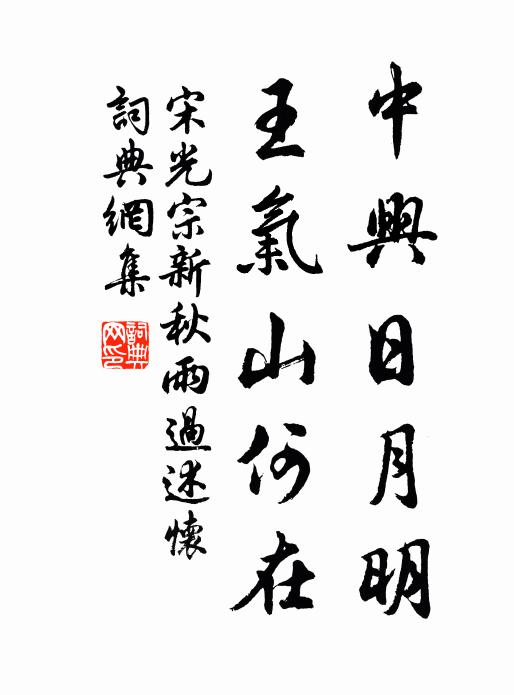 中興日月明
王氣山何在
宋光宗新秋雨過述懷
詞典網集
詞典网印